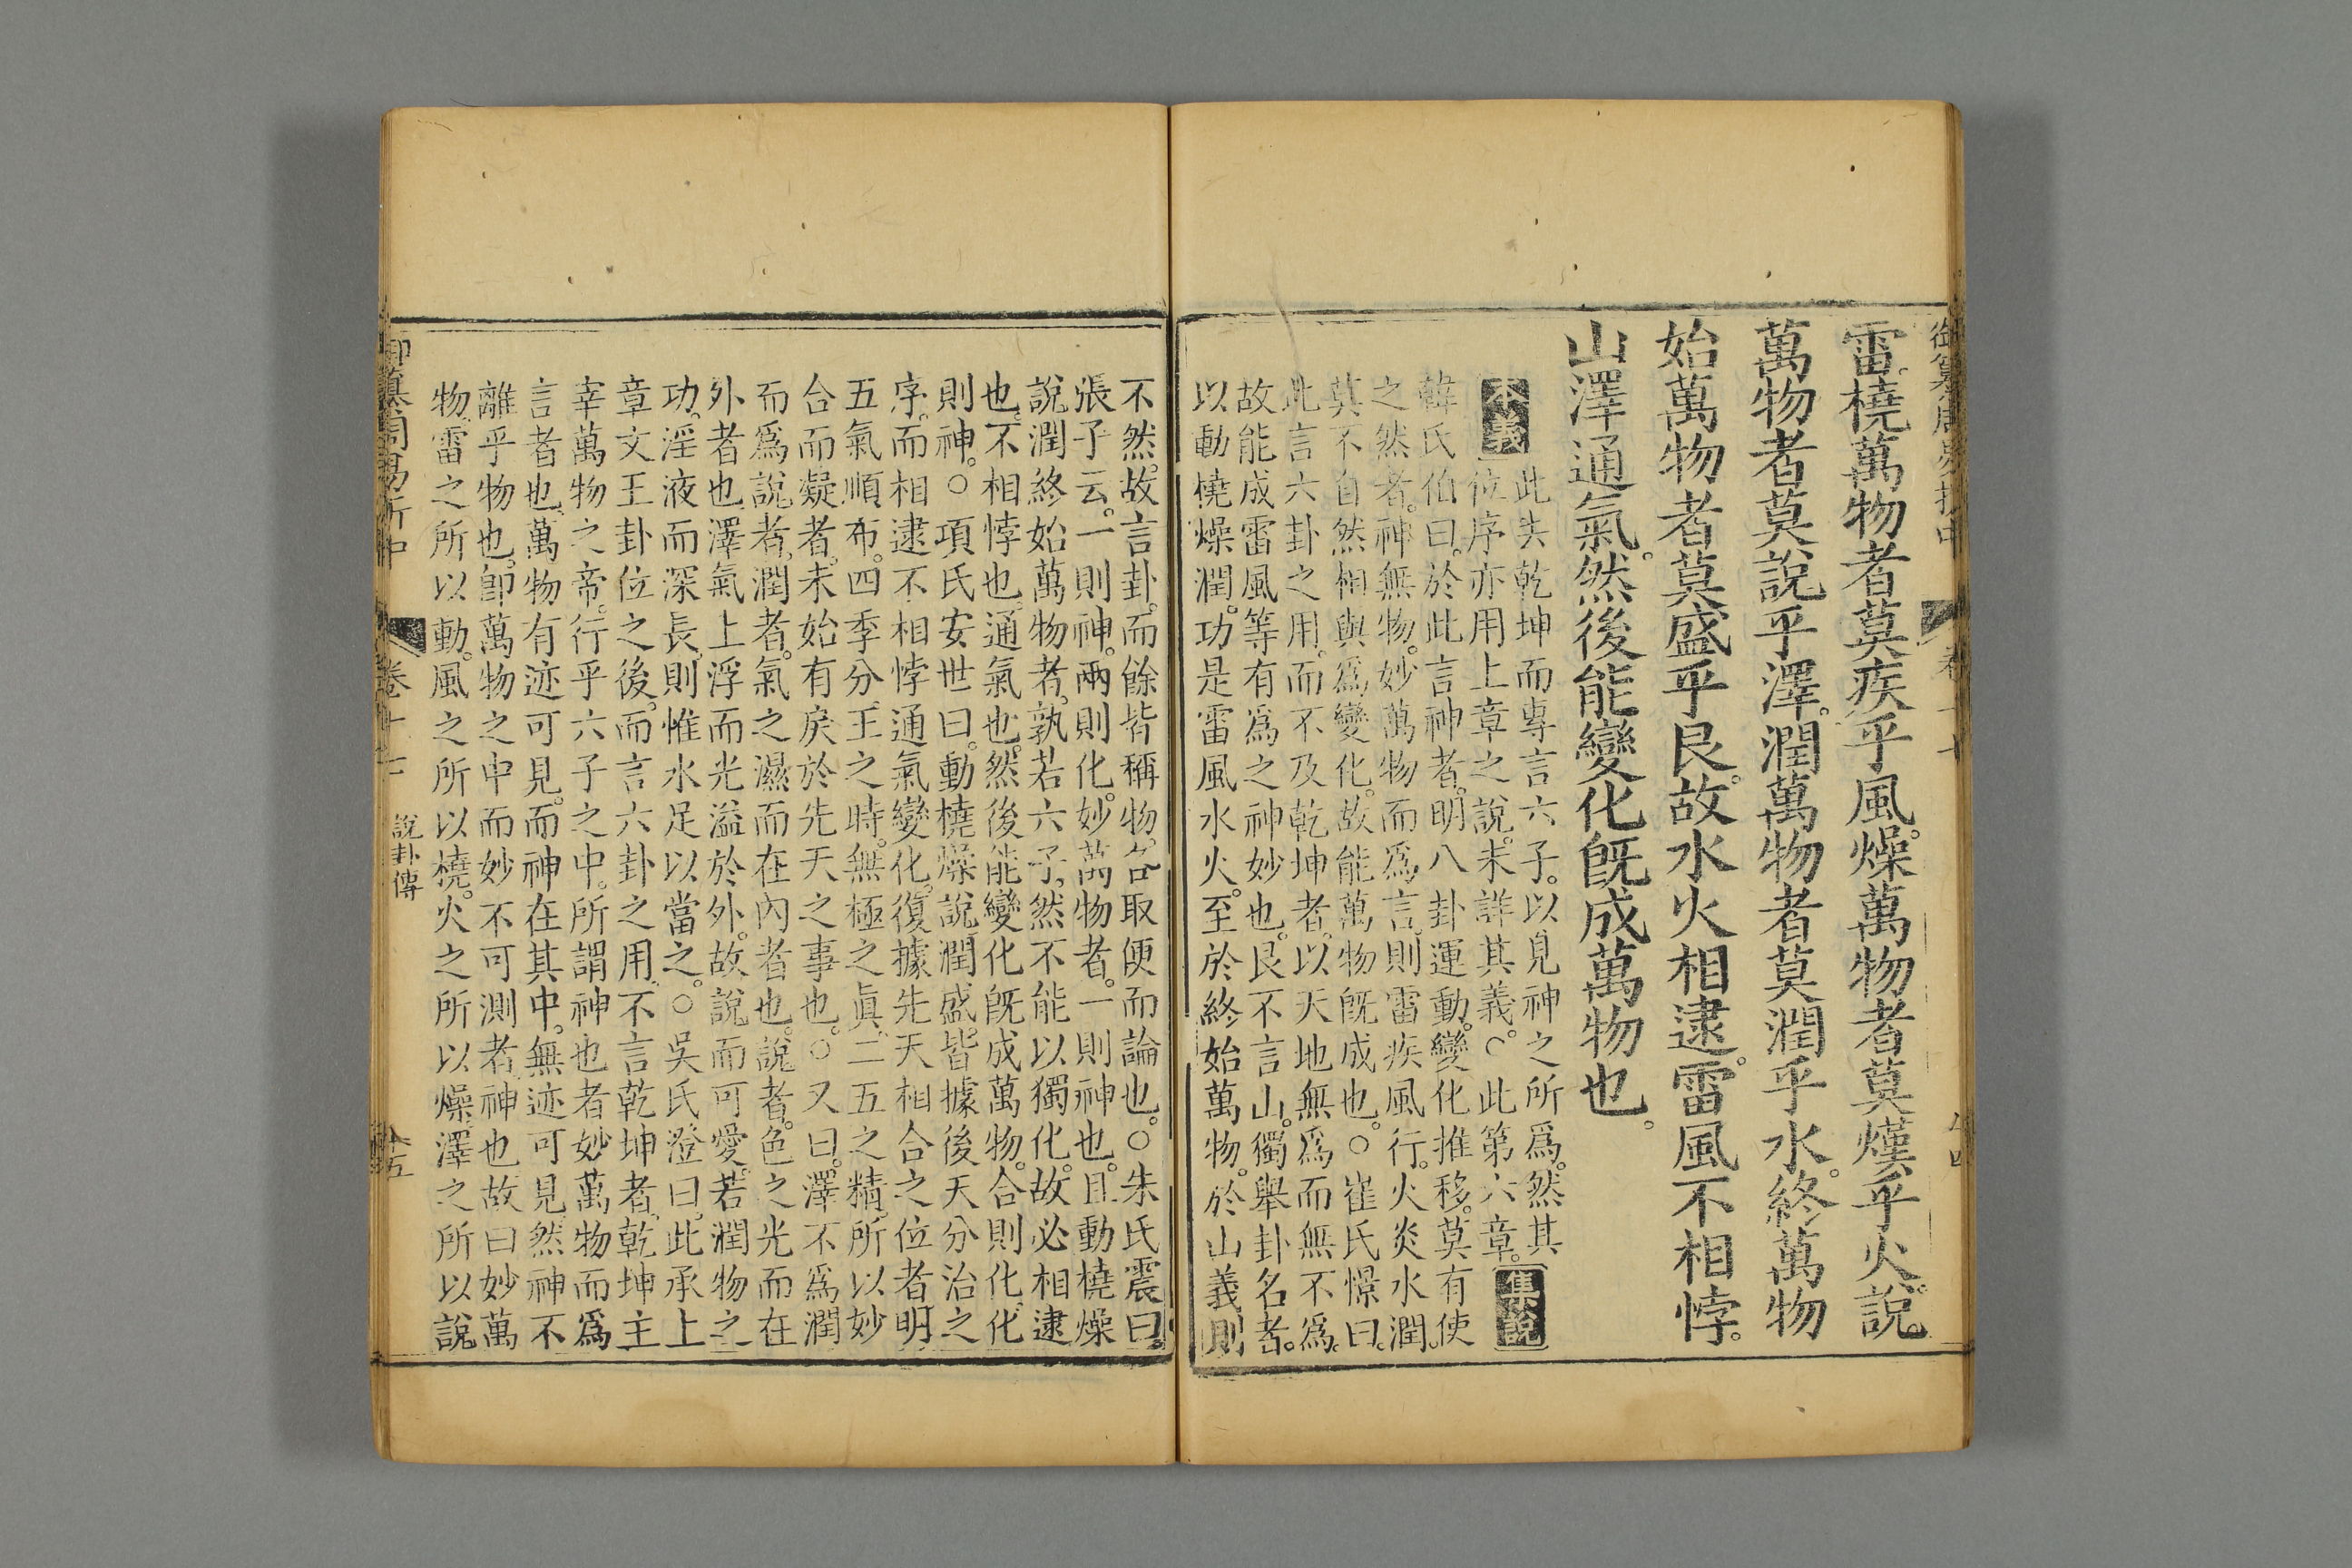 雷。橈萬物者莫疾乎風。燥萬物者莫熯乎火。說
萬物者莫說乎澤。潤萬物者莫潤乎水。終萬物
始萬物者莫盛乎艮。故水火相逮。雷風不相悖。
山澤通氣。然後能變化旣成萬物也。
本義 此去乾坤而專言六子。以見神之所爲。然其
位序亦用上章之說。未詳其義。○此第六章。 集說
韓氏伯曰。於此言神者。明八卦運動。變化推移。莫有使
之然者。神無物。妙萬物而爲言。則雷疾風行。火炎水潤。
莫不自然相與爲變化。故能萬物旣成也。○崔氏憬曰。
此言六卦之用。而不及乾坤者。以天地無爲而無不爲。
故能成雷風等有爲之神妙也。艮不言山。獨舉卦名者。
以動橈燥潤。功是雷風水火。至於終始萬物。於山義則
不然。故言卦。而餘皆稱物。各取便而論也。○朱氏震曰。
張子云。一則神。兩則化。妙萬物者。一則神也。且動橈燥
說潤終始萬物者。孰若六子。然不能以獨化。故必相逮
也。不相悖也。通氣也。然後能變化旣成萬物。合則化。化
則神。○項氏安世曰。動橈燥說潤盛。皆據後天分治之
序。而相逮不相悖通氣變化。復據先天相合之位者。明
五氣順布。四季分王之時。無極之眞。二五之精。所以妙
合而凝者。未始有戾於先天之事也。○又曰。澤不爲潤
而爲說者。潤者。氣之濕而在內者也。說者。色之光而在
外者也。澤氣上浮而光溢於外。故說而可愛。若潤物之
功。淫液而深長。則惟水足以當之。○吳氏澄曰。此承上
章文王卦位之後。而言六卦之用。不言乾坤者。乾坤主
宰萬物之帝。行乎六子之中。所謂神也者。妙萬物而爲
言者也。萬物有迹可見。而神在其中。無迹可見。然神不
離乎物也。卽萬物之中而妙不可測者。神也。故曰妙萬
物。雷之所以動。風之所以橈。火之所以燥。澤之所以說
御纂周易折中 卷十七 說卦傳 十五